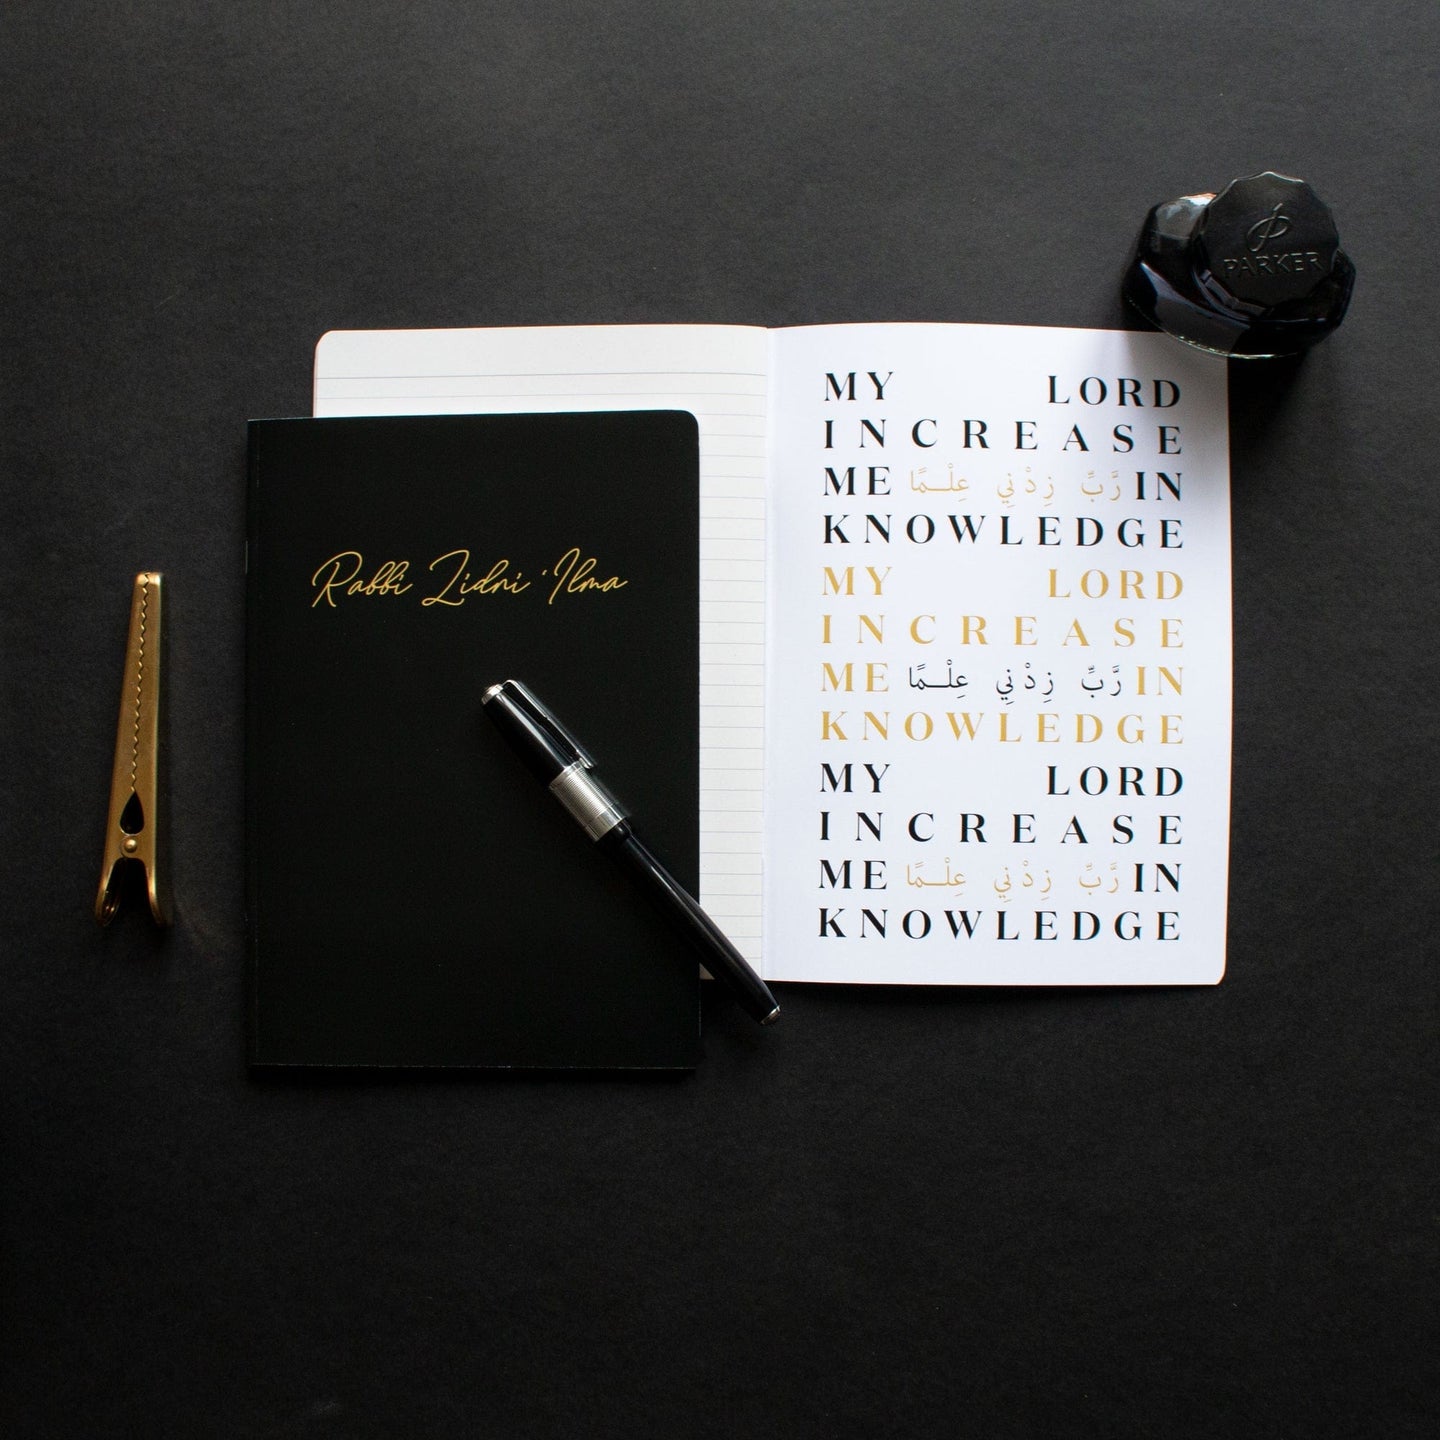 Rabbi Zidni 'Ilma
MY LORD
INCREASE
ME رَّبِّ زِدْنِي عِلْـمًا IN
KNOWLEDGE
MY LORD
INCREASE
ME رَّبِّ زِدْنِي عِلْـمًا IN
KNOWLEDGE
MY LORD
INCREASE
ME رَّبِّ زِدْنِي عِلْـمًا IN
KNOWLEDGE
PARKER